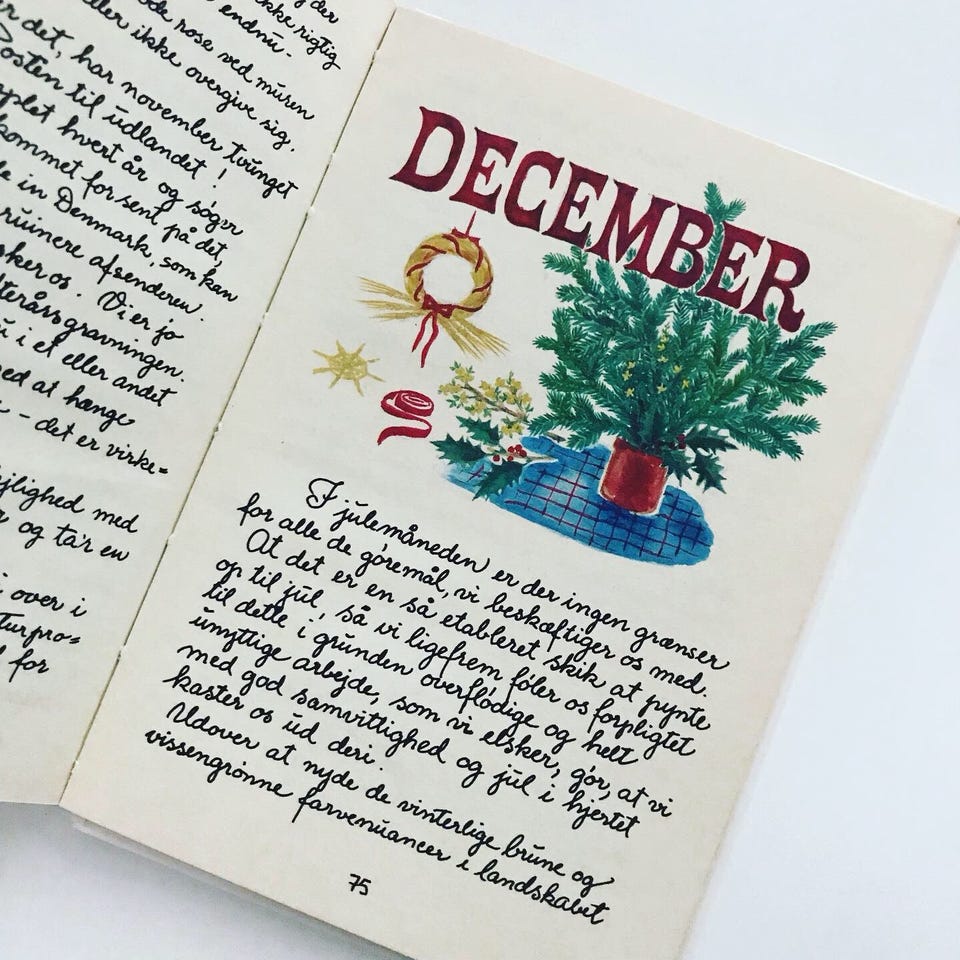 og der
ikke rigtig
endnu.
ode rose ved muren
eller ikke overgive sig.
er det, har november tvunget
Posten til udlandet!
oplet hvert år og søger
kommet for sent på det,
de in Denmark, som kan
ruinere afsenderen.
sker os. Vi er jo
terårsgravningen.
u i et eller andet
ed at hænge
- det er virke=
jlighed med
og ta'r en
over i
turpro=
for
DECEMBER
I julemåneden er der ingen grænser
for alle de gøremål, vi beskæftiger os med.
At det er en så etableret skik at pynte
op til jul, så vi ligefrem føler os forpligtet
til dette i grunden overflødige og helt
unyttige arbejde, som vi elsker, gør, at vi
med god samvittighed og jul i hjertet
kaster os ud deri.
Udover at nyde de vinterlige brune og
vissengrønne farvenuancer i landskabet
75